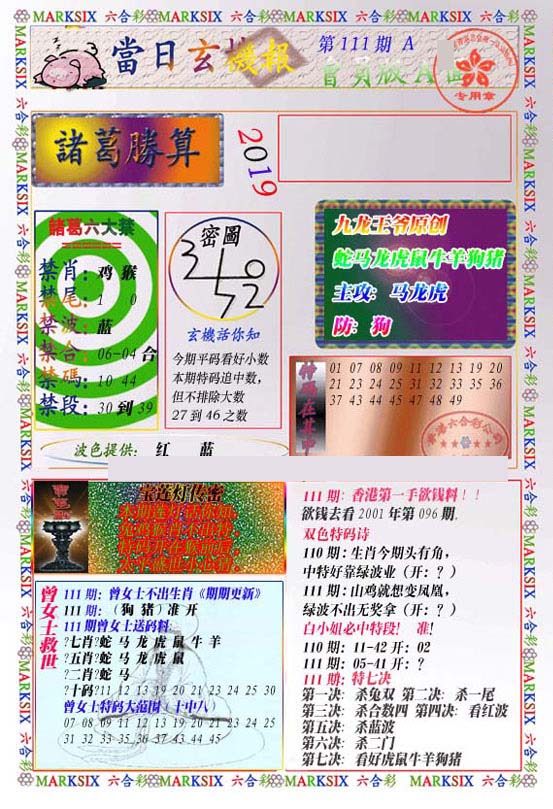 MARKSIX 六合彩 MARKSIX 六合彩 MARKSIX 六合彩 MARKSIX 六合彩
當日玄機报
第111期 A
會員版A面
专用章
諸葛勝算
2019
諸葛六大禁
禁肖：鸡 猴
禁尾：1 0
禁波：蓝
禁合：06-04 合
禁碼：10 44
禁段：30 到 39
密圖
玄機話你知
今期平码看好小数
本期特码追中数，
但不排除大数
27 到 46 之数
九龙王爷原创
蛇马龙虎鼠牛羊狗猪
主攻：马龙虎
防：狗
特碼在其中
01 07 08 09 11 12 13 19 20
21 23 24 25 31 32 33 35 36
37 43 44 45 47 48 49
波色提供： 红 蓝
宝莲灯传密
111期：曾女士不出生肖《期期更新》
111期：（狗 猪）准 开
111期曾女士送码料：
?七肖?蛇 马 龙 虎 鼠 牛 羊
?五肖?蛇 马 龙 虎 鼠
?二肖?蛇 马
?十码?11 12 13 19 20 21 23 24 25 30
曾女士特码大范围（十中八）
07 08 09 11 12 13 19 20 21 23 24 25
31 32 33 35 36 37 43 44 45
曾女士救世
111期：香港第一手欲钱料！！
欲钱去看 2001 年第 096 期.
双色特码诗
110期：生肖今期头有角，
中特好靠绿波业（开：？）
111期：山鸡就想变凤凰，
绿波不出无奖拿（开：？）
白小姐必中特段！ 准！
110期：11-42 开：02
111期：05-41 开：？
111期：特七决
第一决：杀兔双 第二决：杀一尾
第三决：杀合数四 第四决：看红波
第五决：杀蓝波
第六决：杀二门
第七决：看好虎鼠牛羊狗猪
MARKSIX 六合彩 MARKSIX 六合彩 MARKSIX 六合彩 MARKSIX 六合彩